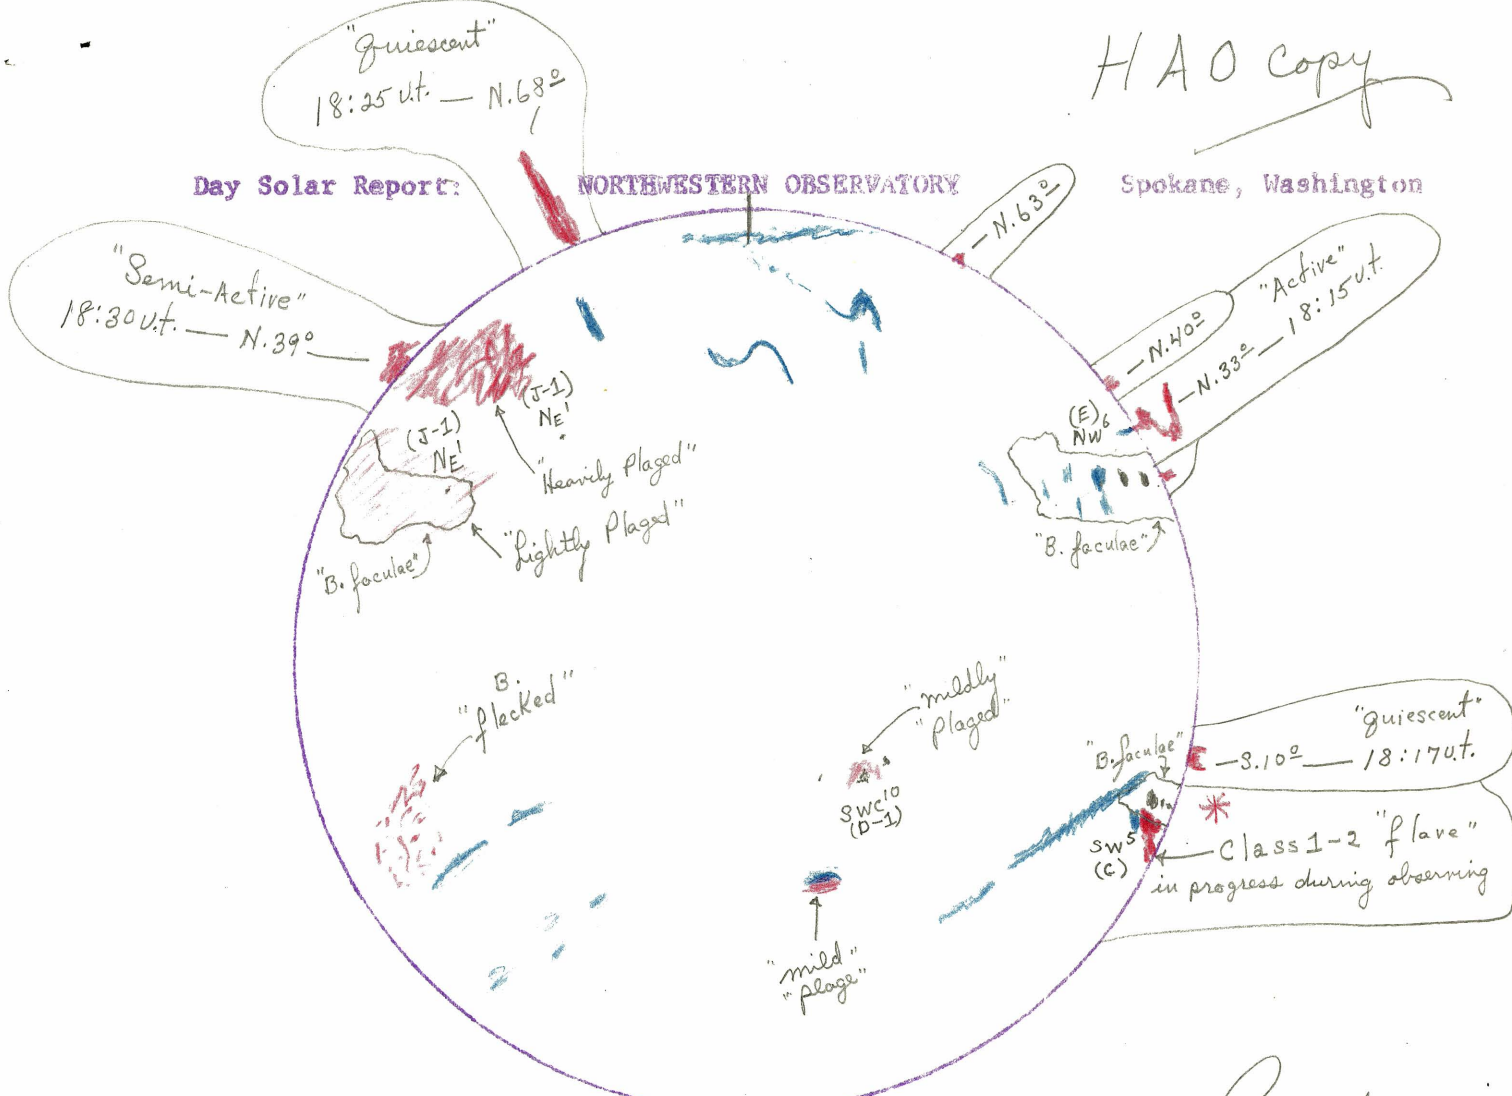 "Quiescent"
18:25 U.t. — N.68°
HAO Copy
Day Solar Report: NORTHWESTERN OBSERVATORY Spokane, Washington
— N.63°
"Semi-Active"
18:30 U.t. — N.39°
"Active"
— N.33° — 18:15 U.t.
— N.40°
(J-1)
NE'
(J-1)
NE'
(E)6
NW
"Heavily Plaged"
"Lightly Plaged"
"B. faculae"
"B. faculae"
B.
"flecked"
"mildly"
"plaged"
SWC10
(D-1)
"mild"
"plage"
"B. faculae"
"Quiescent"
— S.10° — 18:17 U.t.
SW5
(C)
Class 1-2 "flare"
in progress during observing